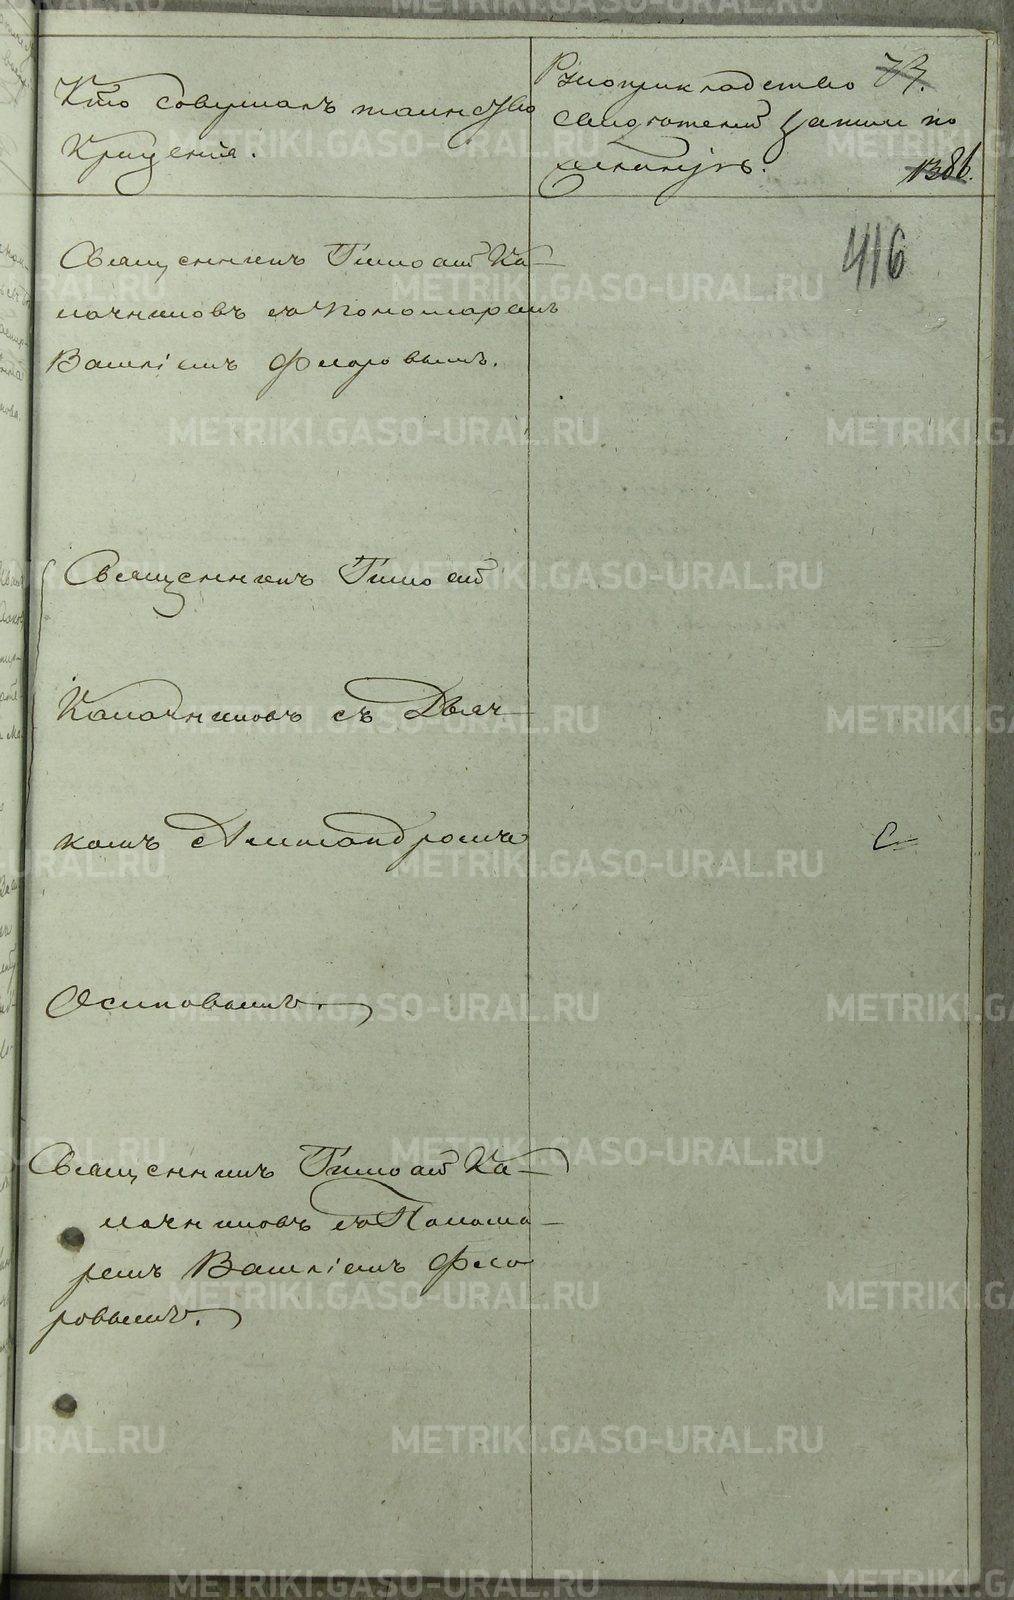 Кто совершалъ таинство
Крещенія.
Рукоприкладство
свидѣтелей записи по
желанію.
1386.
416
Священникъ Тимоѳей Ка-
лачниковъ съ Пономаремъ
Василіемъ Флоровымъ.
Священникъ Тимоѳей
Калачниковъ съ Дьяч-
комъ Александромъ
С
Осиповымъ.
Священникъ Тимоѳей Ка-
лачниковъ съ Понома-
ремъ Василіемъ Фло
ровымъ.
METRIKI.GASO-URAL.RU